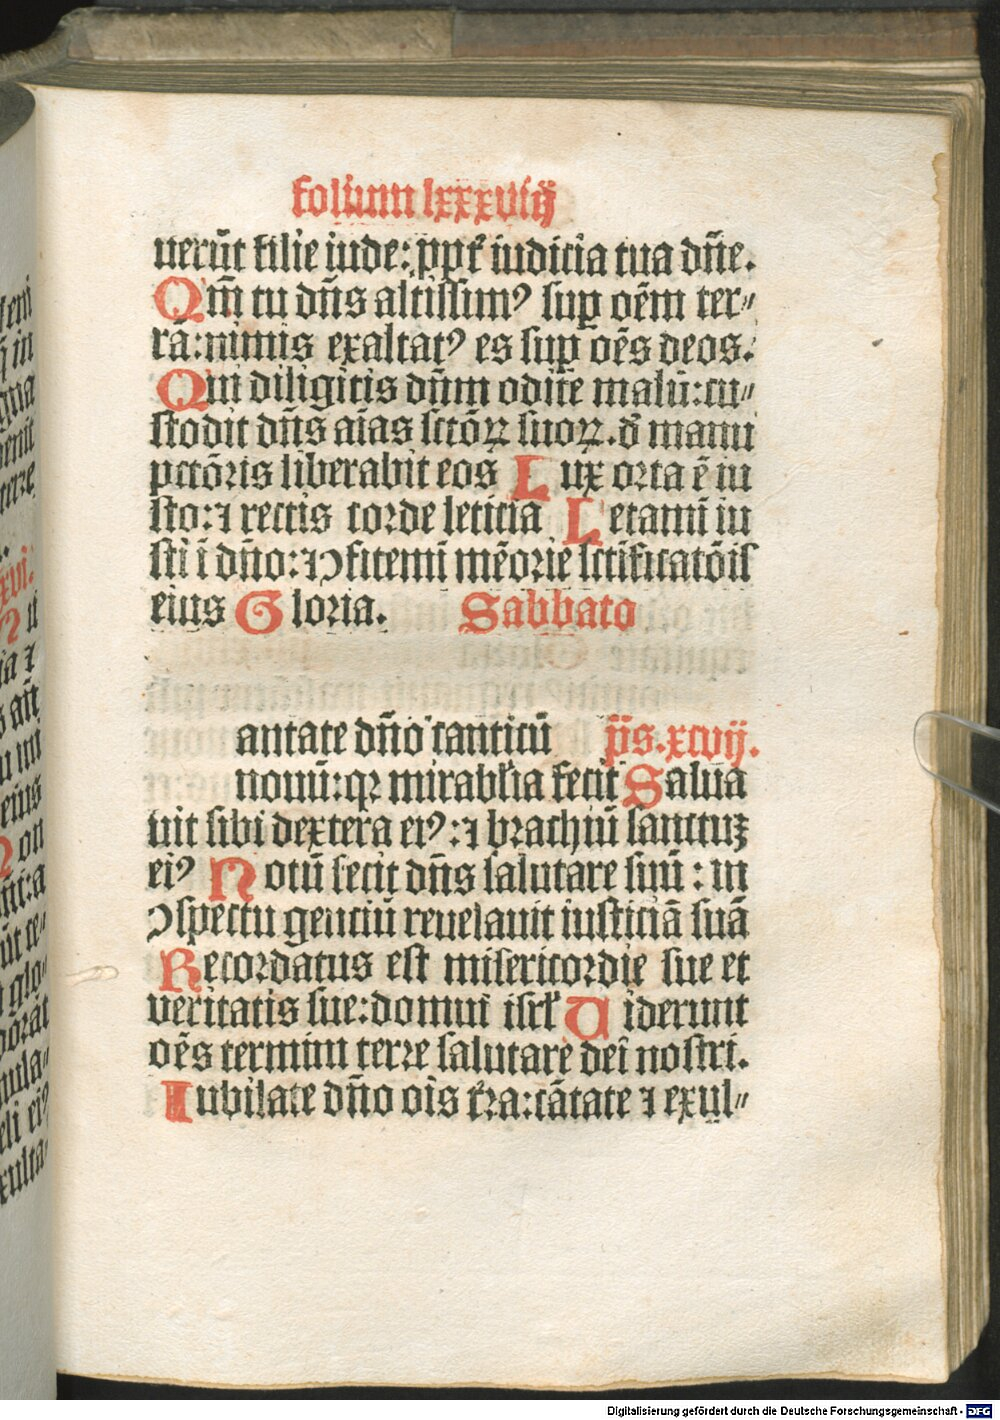 folium lxxxviij
uerūt filie iude: ꝓpt̃ iudicia tua dñe.
Qm̃ tu dñs altissimꝰ sup oēm ter⸗
rā:nimis exaltatꝰ es sup oēs deos.
Qui diligitis dñm odite malū:cu⸗
stodit dñs aīas sctōꝝ suoꝝ.d̕ manu
pctōris liberabit eos Lux orta ē iu
sto:⁊ rectis corde leticia Letamī iu
sti ī dño:⁊ ꝯfitemī mēorie sctificatōis
eius Gloria. Sabbato
antate dño canticū p̄s.xcvij.
nouū:qꝛ mirabl̓ia fecit Salua
uit sibi dextera eiꝰ:⁊ brachiū sanctuꝫ
eiꝰ Notū fecit dñs salutare suū : in
ꝯspectu genciū reuelauit iusticiā suā
Recordatus est misericordie sue et
veritatis sue:domui isrl̓ Uiderunt
oēs termini terre salutare dei nostri.
Iubilate dño oīs t̓ra:cātate ⁊ exul⸗
Digitalisierung gefördert durch die Deutsche Forschungsgemeinschaft - DFG